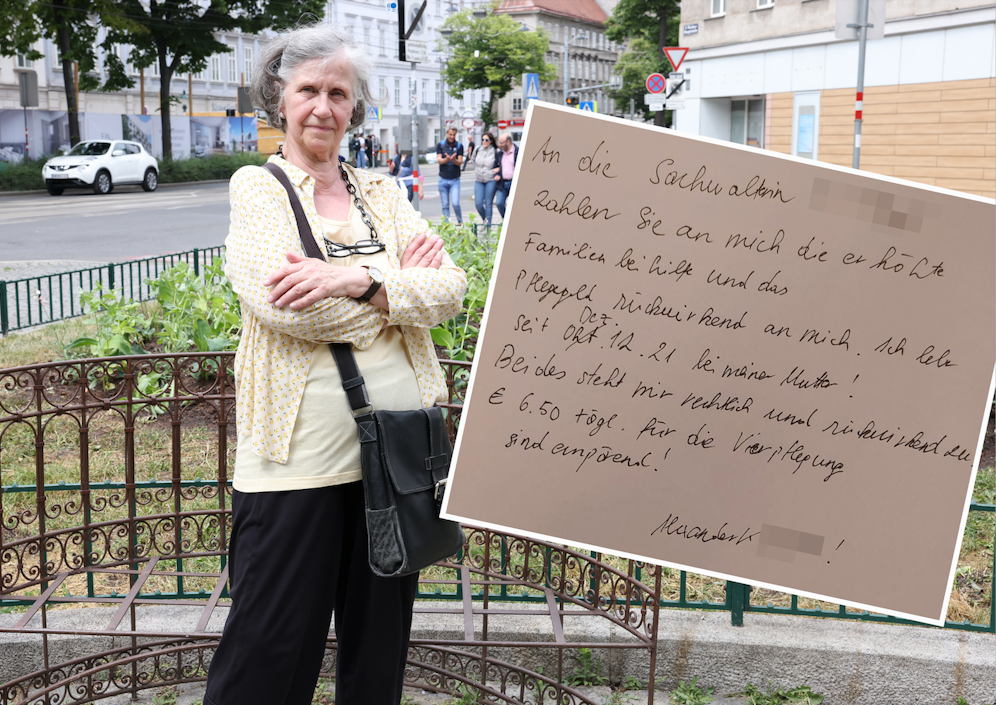 An die Sachwalterin
zahlen Sie an mich die erhöhte
Familienbeihilfe und das
Pflegegeld rückwirkend an mich. Ich lebe
Dez.
seit Okt. 12. 21 bei meiner Mutter!
Beides steht mir rechtlich und rückwirkend zu
€ 6.50 tägl. für die Vierpflegung
sind empörend!
Alexander K !